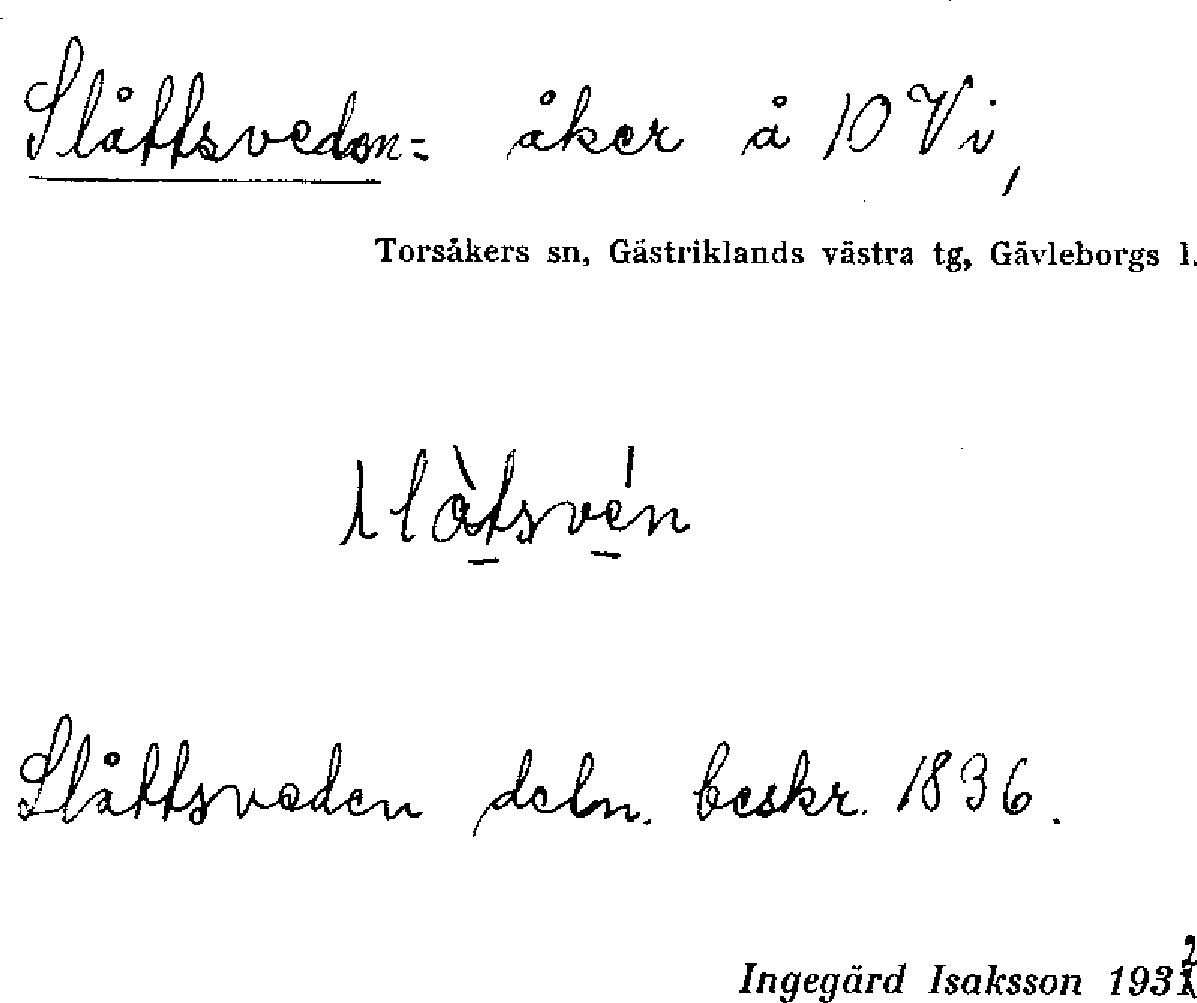 Slåttsveden= åker å 10 Vi,
Torsåkers sn, Gästriklands västra tg, Gävleborgs l.
Slåttsveden deln. beskr. 1836.
Ingegärd Isaksson 1932